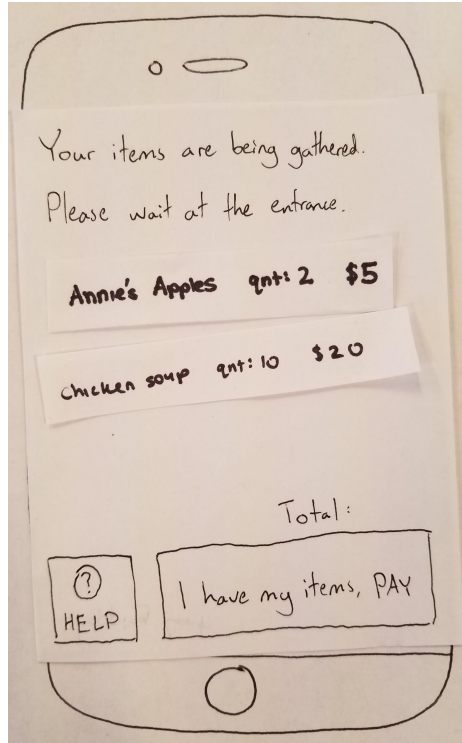 Your items are being gathered.
Please wait at the entrance.
Annie's Apples qnt: 2 $5
chicken soup qnt: 10 $20
Total:
?
HELP
I have my items, PAY